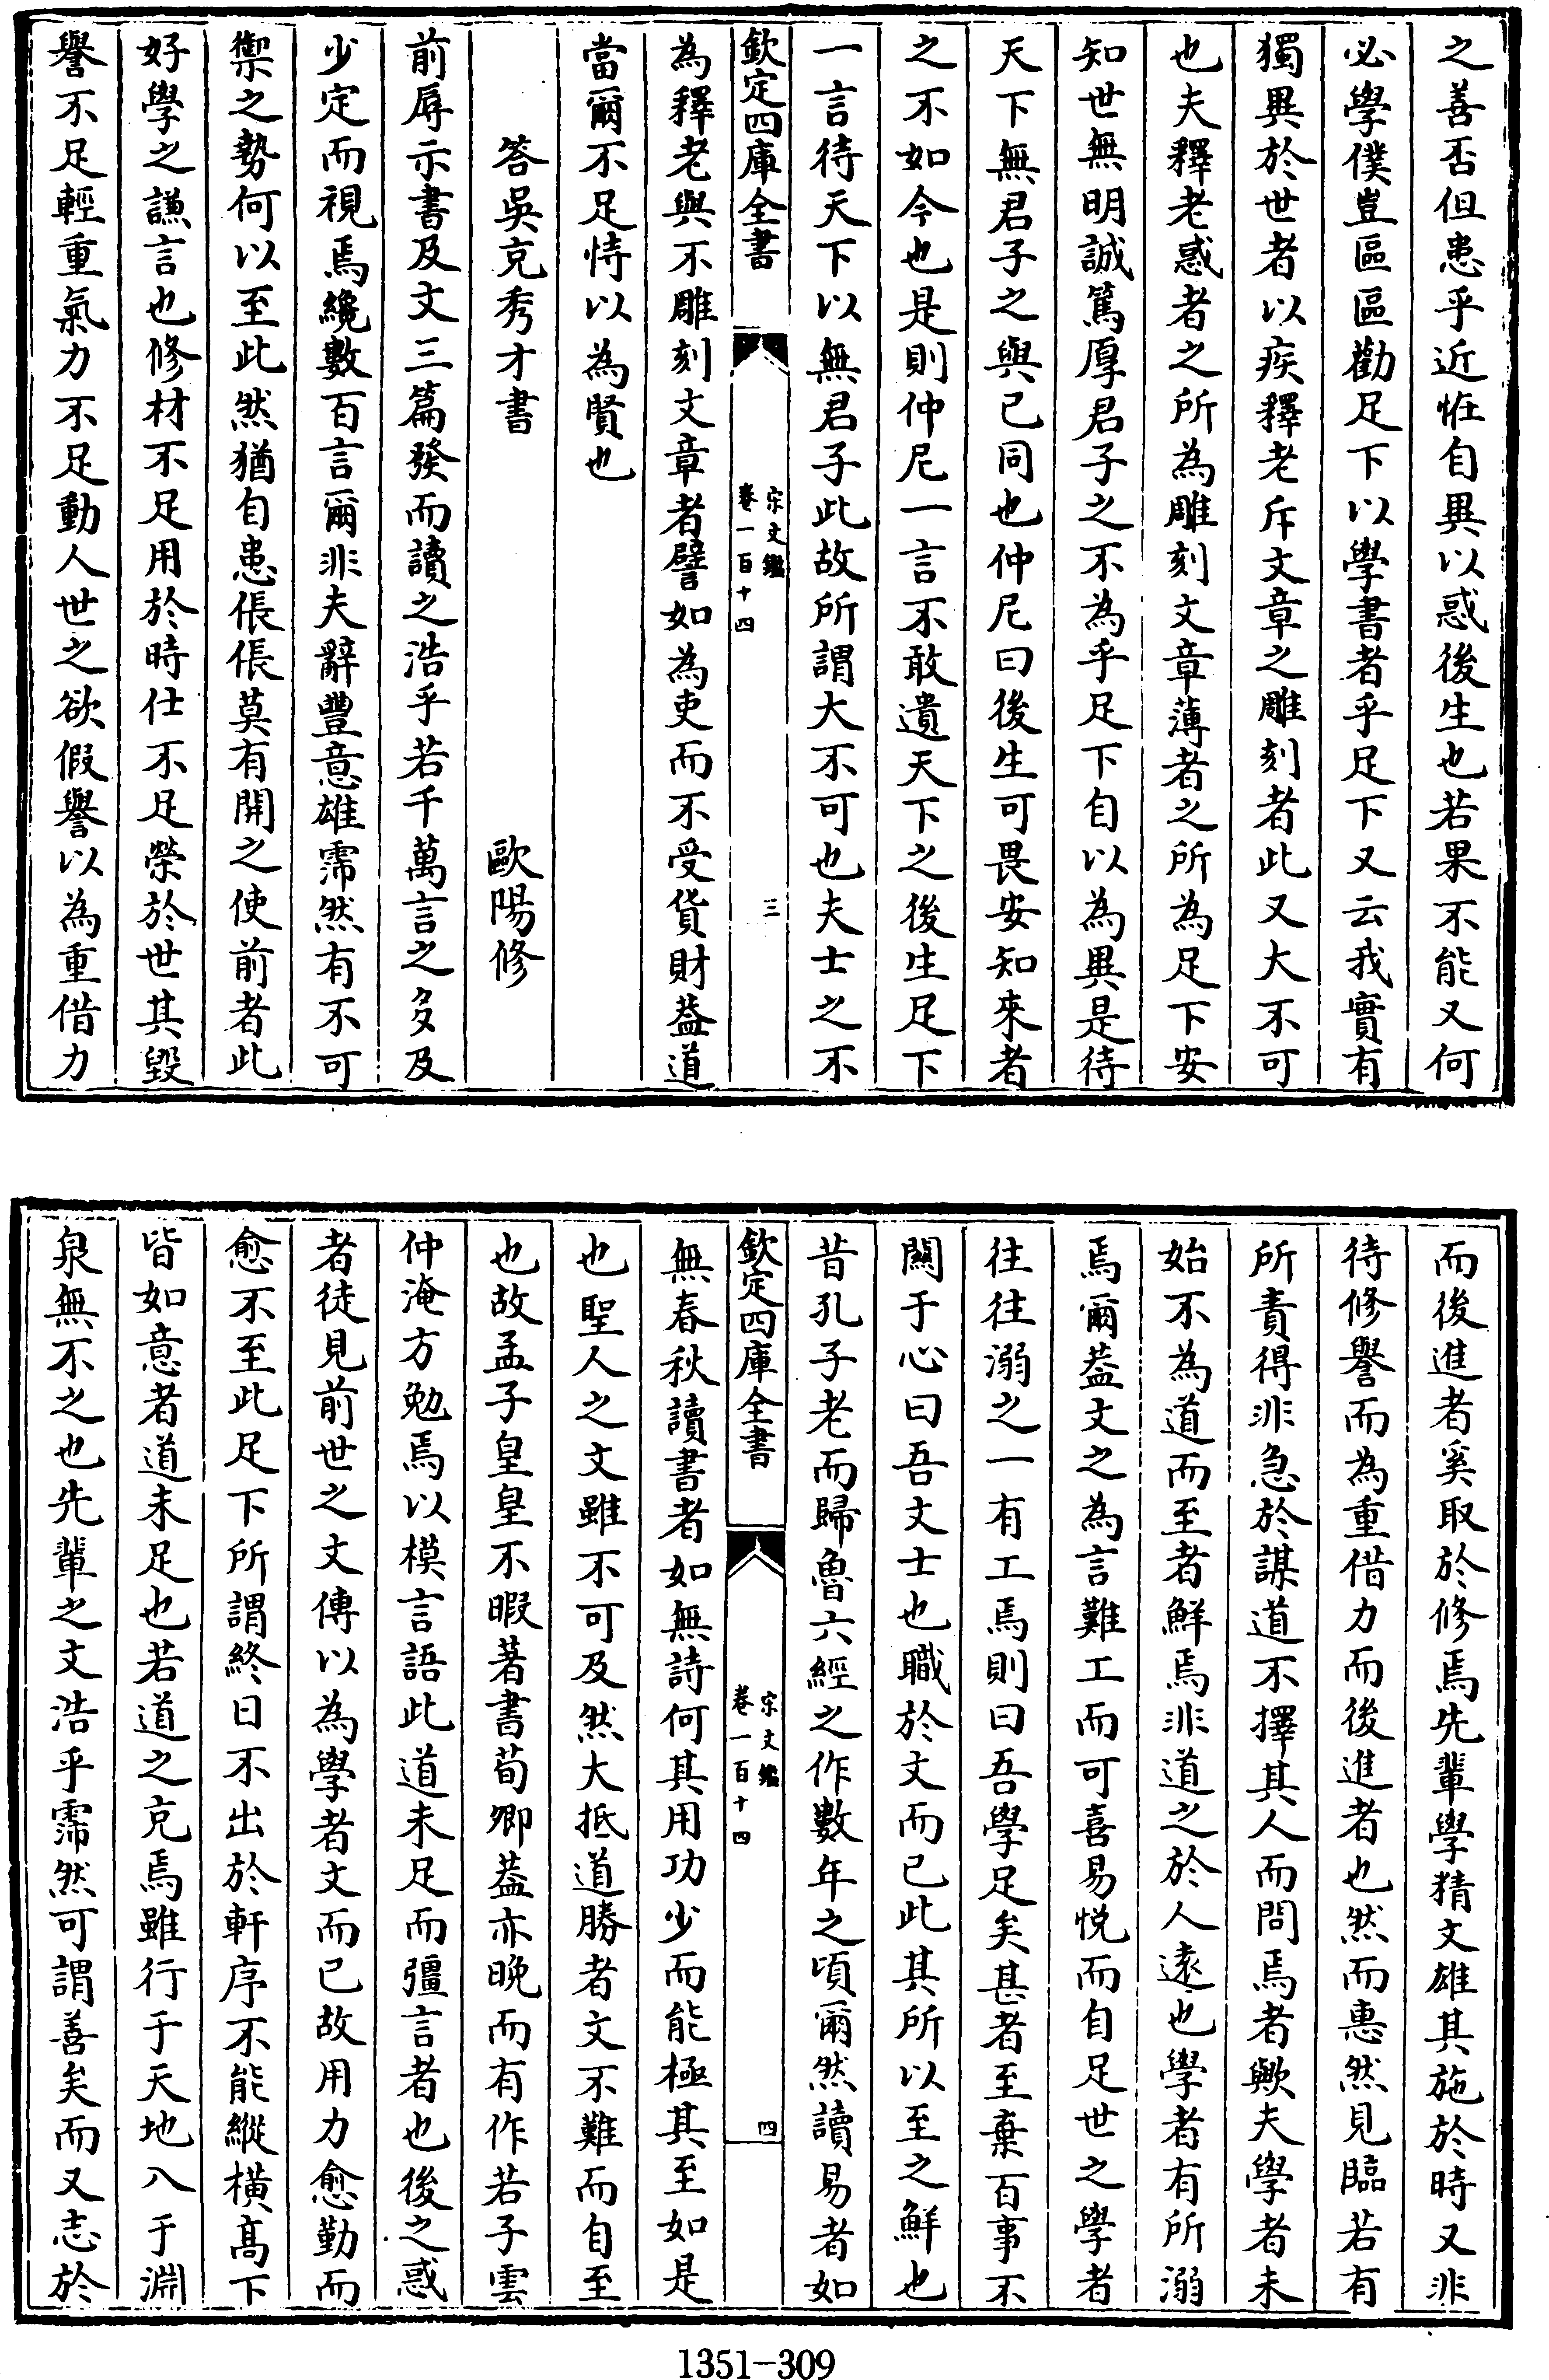 之善否但患乎近怪自異以惑後生也若果不能又何
必學僕豈區區勸足下以學書者乎足下又云我實有
獨異於世者以疾釋老斥文章之雕刻者此又大不可
也夫釋老惑者之所為雕刻文章薄者之所為足下安
知世無明誠篤厚君子之不為乎足下自以為異是待
天下無君子之與已同也仲尼曰後生可畏安知來者
之不如今也是則仲尼一言不敢遺天下之後生足下
一言待天下以無君子此故所謂大不可也夫士之不
欽定四庫全書
宋文鑑
卷一百十四
三
為釋老與不雕刻文章者譬如為吏而不受貨財蓋道
當爾不足恃以為賢也
答吳充秀才書
歐陽修
前辱示書及文三篇發而讀之浩乎若千萬言之多及
少定而視焉纔數百言爾非夫辭豐意雄霈然有不可
禦之勢何以至此然猶自患倀倀莫有開之使前者此
好學之謙言也修材不足用於時仕不足榮於世其毀
譽不足輕重氣力不足動人世之欲假譽以為重借力
而後進者奚取於修焉先輩學精文雄其施於時又非
待修譽而為重借力而後進者也然而惠然見臨若有
所責得非急於謀道不擇其人而問焉者歟夫學者未
始不為道而至者鮮焉非道之於人遠也學者有所溺
焉爾蓋文之為言難工而可喜易悅而自足世之學者
往往溺之一有工焉則曰吾學足矣甚者至棄百事不
關于心曰吾文士也職於文而已此其所以至之鮮也
昔孔子老而歸魯六經之作數年之頃爾然讀易者如
欽定四庫全書
宋文鑑
卷一百十四
四
無春秋讀書者如無詩何其用功少而能極其至如是
也聖人之文雖不可及然大抵道勝者文不難而自至
也故孟子皇皇不暇著書荀卿蓋亦晚而有作若子雲
仲淹方勉焉以模言語此道未足而彊言者也後之惑
者徒見前世之文傳以為學者文而已故用力愈勤而
愈不至此足下所謂終日不出於軒序不能縱橫高下
皆如意者道未足也若道之充焉雖行于天地入于淵
泉無不之也先輩之文浩乎霈然可謂善矣而又志於
1351-309